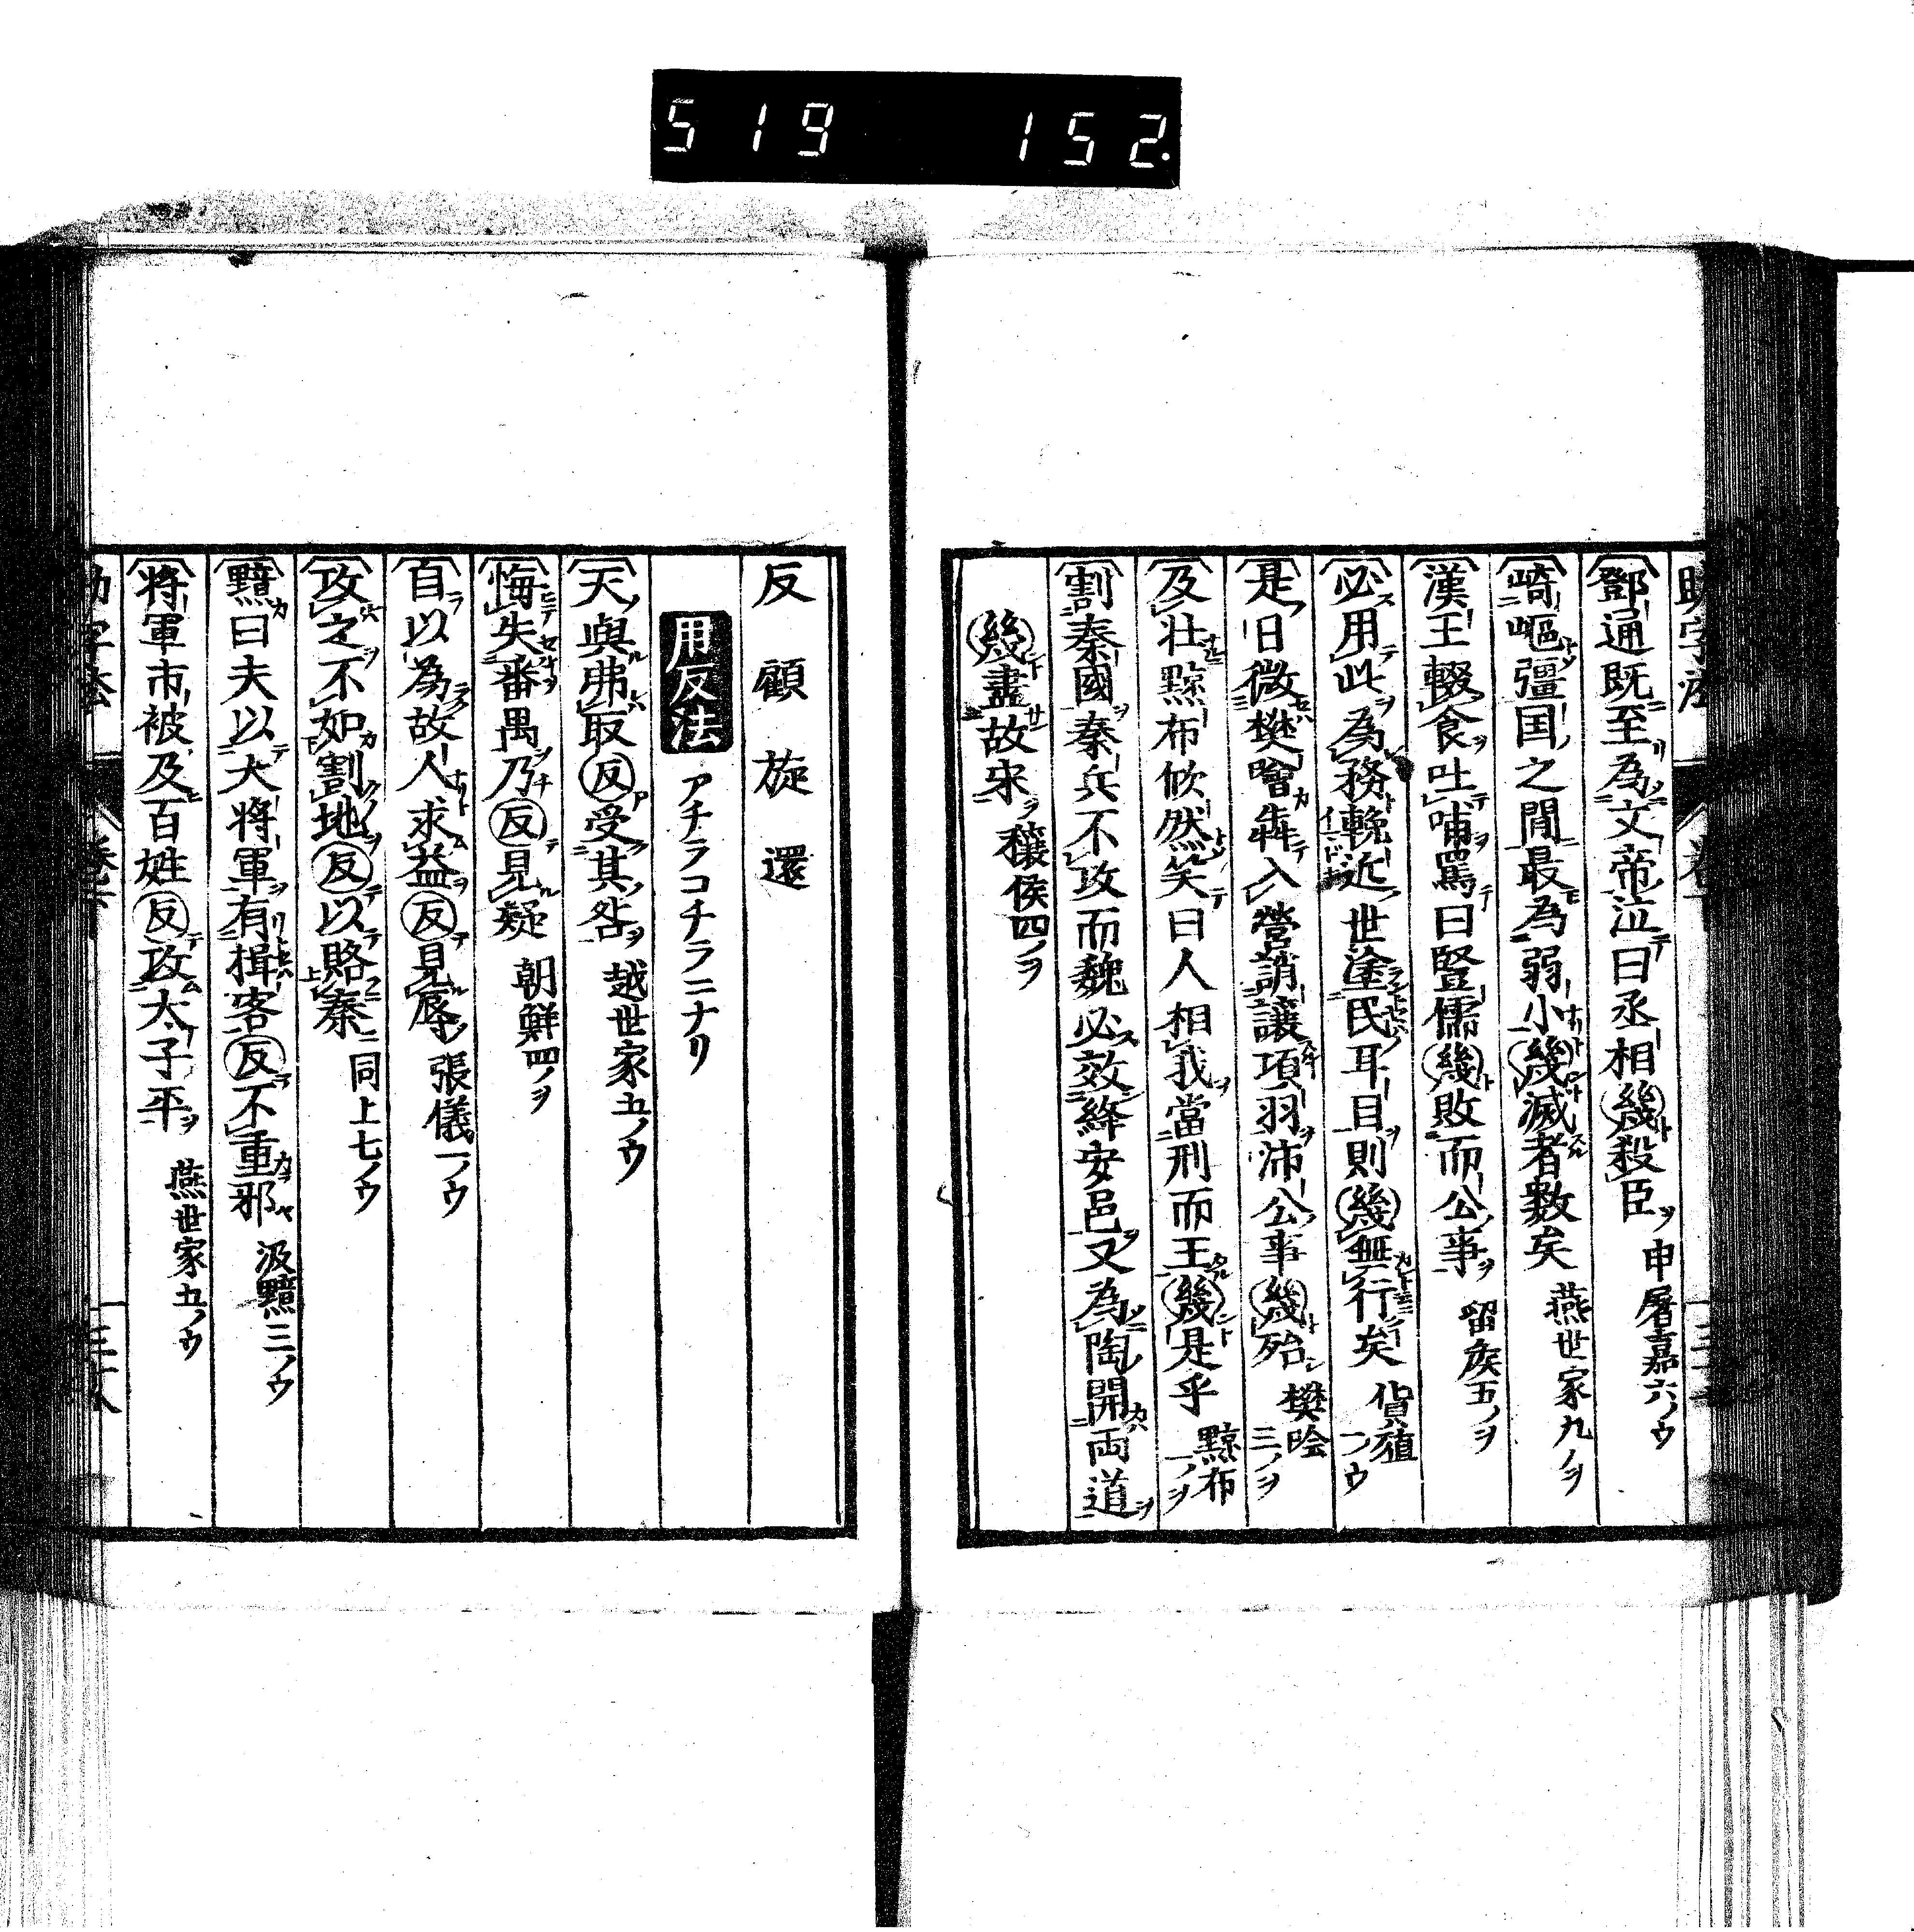 519 152.
鄧通既至為文帝泣曰丞相幾殺臣 申屠嘉六ノウ
崎嶇彊国之間最為弱小幾滅者数矣 燕世家九ノヲ
漢王輟食吐哺罵曰豎儒幾敗而公事 留矦五ノヲ
必用此為務輓近世塗民耳目則幾無行矣 貨殖一ノウ
是日微樊噲犇入營誚譲項羽沛公事幾殆 樊噲三ノヲ
及壮黥布欣然笑曰人相我當刑而王幾是乎 黥布一ノヲ
割秦國秦兵不攻而魏必效絳安邑又為陶開両道
幾盡故宋 穰侯四ノヲ
反 顧 旋 還
用反法 アチラコチラニナリ
天與弗取反受其咎 越世家五ノウ
悔失番禺乃反見疑 朝鮮四ノヲ
自以為故人求益反見辱 張儀一ノウ
攻之不如割地反以賂秦 同上七ノウ
黯曰夫以大将軍有揖客反不重邪 汲黯三ノウ
将軍市被及百姓反攻太子平 燕世家五ノウ